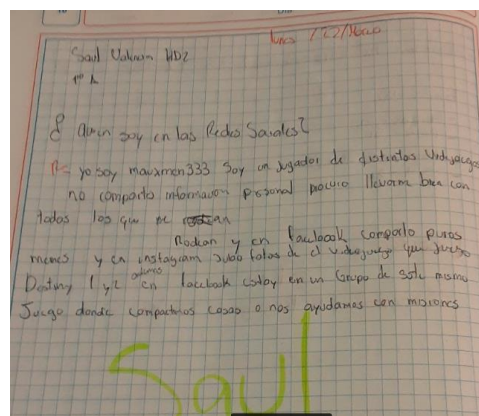 lunes / 22/
Saul HDZ
1º A
¿ Quien soy en las Redes Sociales?
R= yo soy mauxmen333 Soy un Jugador de distintos Videojuegos
no comparto informacion personal procuro llevarm bien con
todos los que me
Rodean y en facebook comparto puros
memes y en instagram subo fotos de el videojuego que juego
Destiny 1 y 2 en facebook estoy en un Grupo de este mismo
Juego donde compartimos cosas o nos ayudamos con misiones
Saul